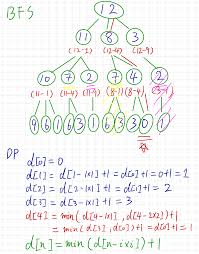 BFS
12
11 8 3
(12-1) (12-4) (12-9)
10 7 2 7 4 2
(11-1) (11-4) (8-1) (8-4)
9 6 1 6 3 1 6 3 3 0 1
DP
d[0]=0
d[1] = d[1-1x1]+1 = d[0]+1 = 0+1 = 1
d[2] = d[2-1x1]+1 = d[1]+1 = 2
d[3] = d[3-1x1]+1 = 3
d[4] = min(d[4-1x1], d[4-2x2])+1
= min(d[3], d[0])+1 = 0+1 = 1
d[n] = min(d[n-ixi])+1